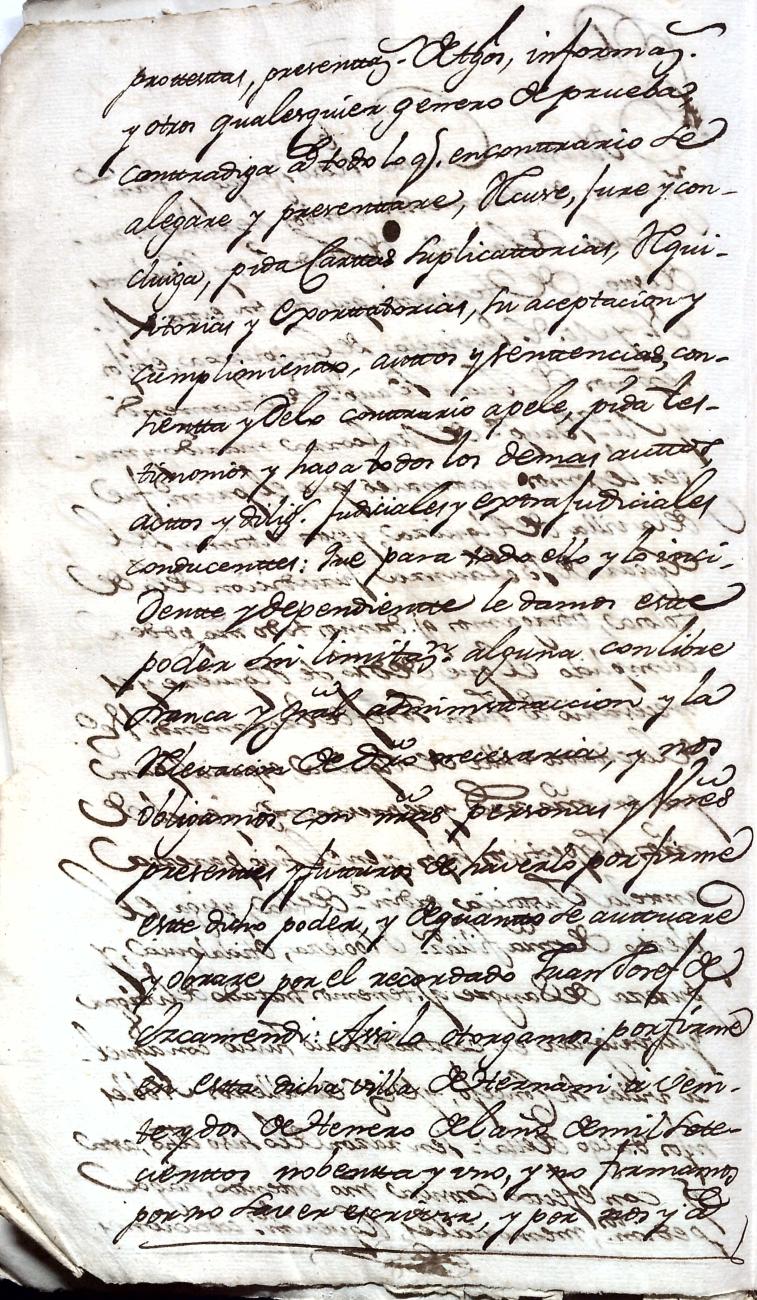 protestas, presentaz.s de tgos, informaz.s
y otros qualesquier genero de prueba,
contradiga de todo lo q.e encontrario se
alegare y presentare, Recuse, Jure y con-
cluiga, pida Carttas Suplicattorias, Requi-
sitorias y Exortatorias, su aceptacion y
cumplimiento, auttos y sentencias, con-
sientta y delo contrario apele, pida tes-
timonios y haga todos los demas auttos,
actos y dilig.s Judiciales y extraJudiciales
conducenttes: Que para todo ello y lo inci-
dentte y dependientte le damos estte
poder sin limitaz.n alguna, con libre
franca y gral administraccion y la
Relevacion de dro necesaria, y nos
obligamos con nras Personas y Vienes
presentes y futuros de haverlo por firme
este dicho poder, y de quanto se auttuare
y obrare por el recordado Juan Josef de
Ezcamendi: Assi lo otorgamos por firme
en estta dicha villa de Hernani a Vein-
te y dos de Henero del año de mil Sete-
cienttos nobentta y uno, y no firmamos
por no saver escrivir, y por nos y à